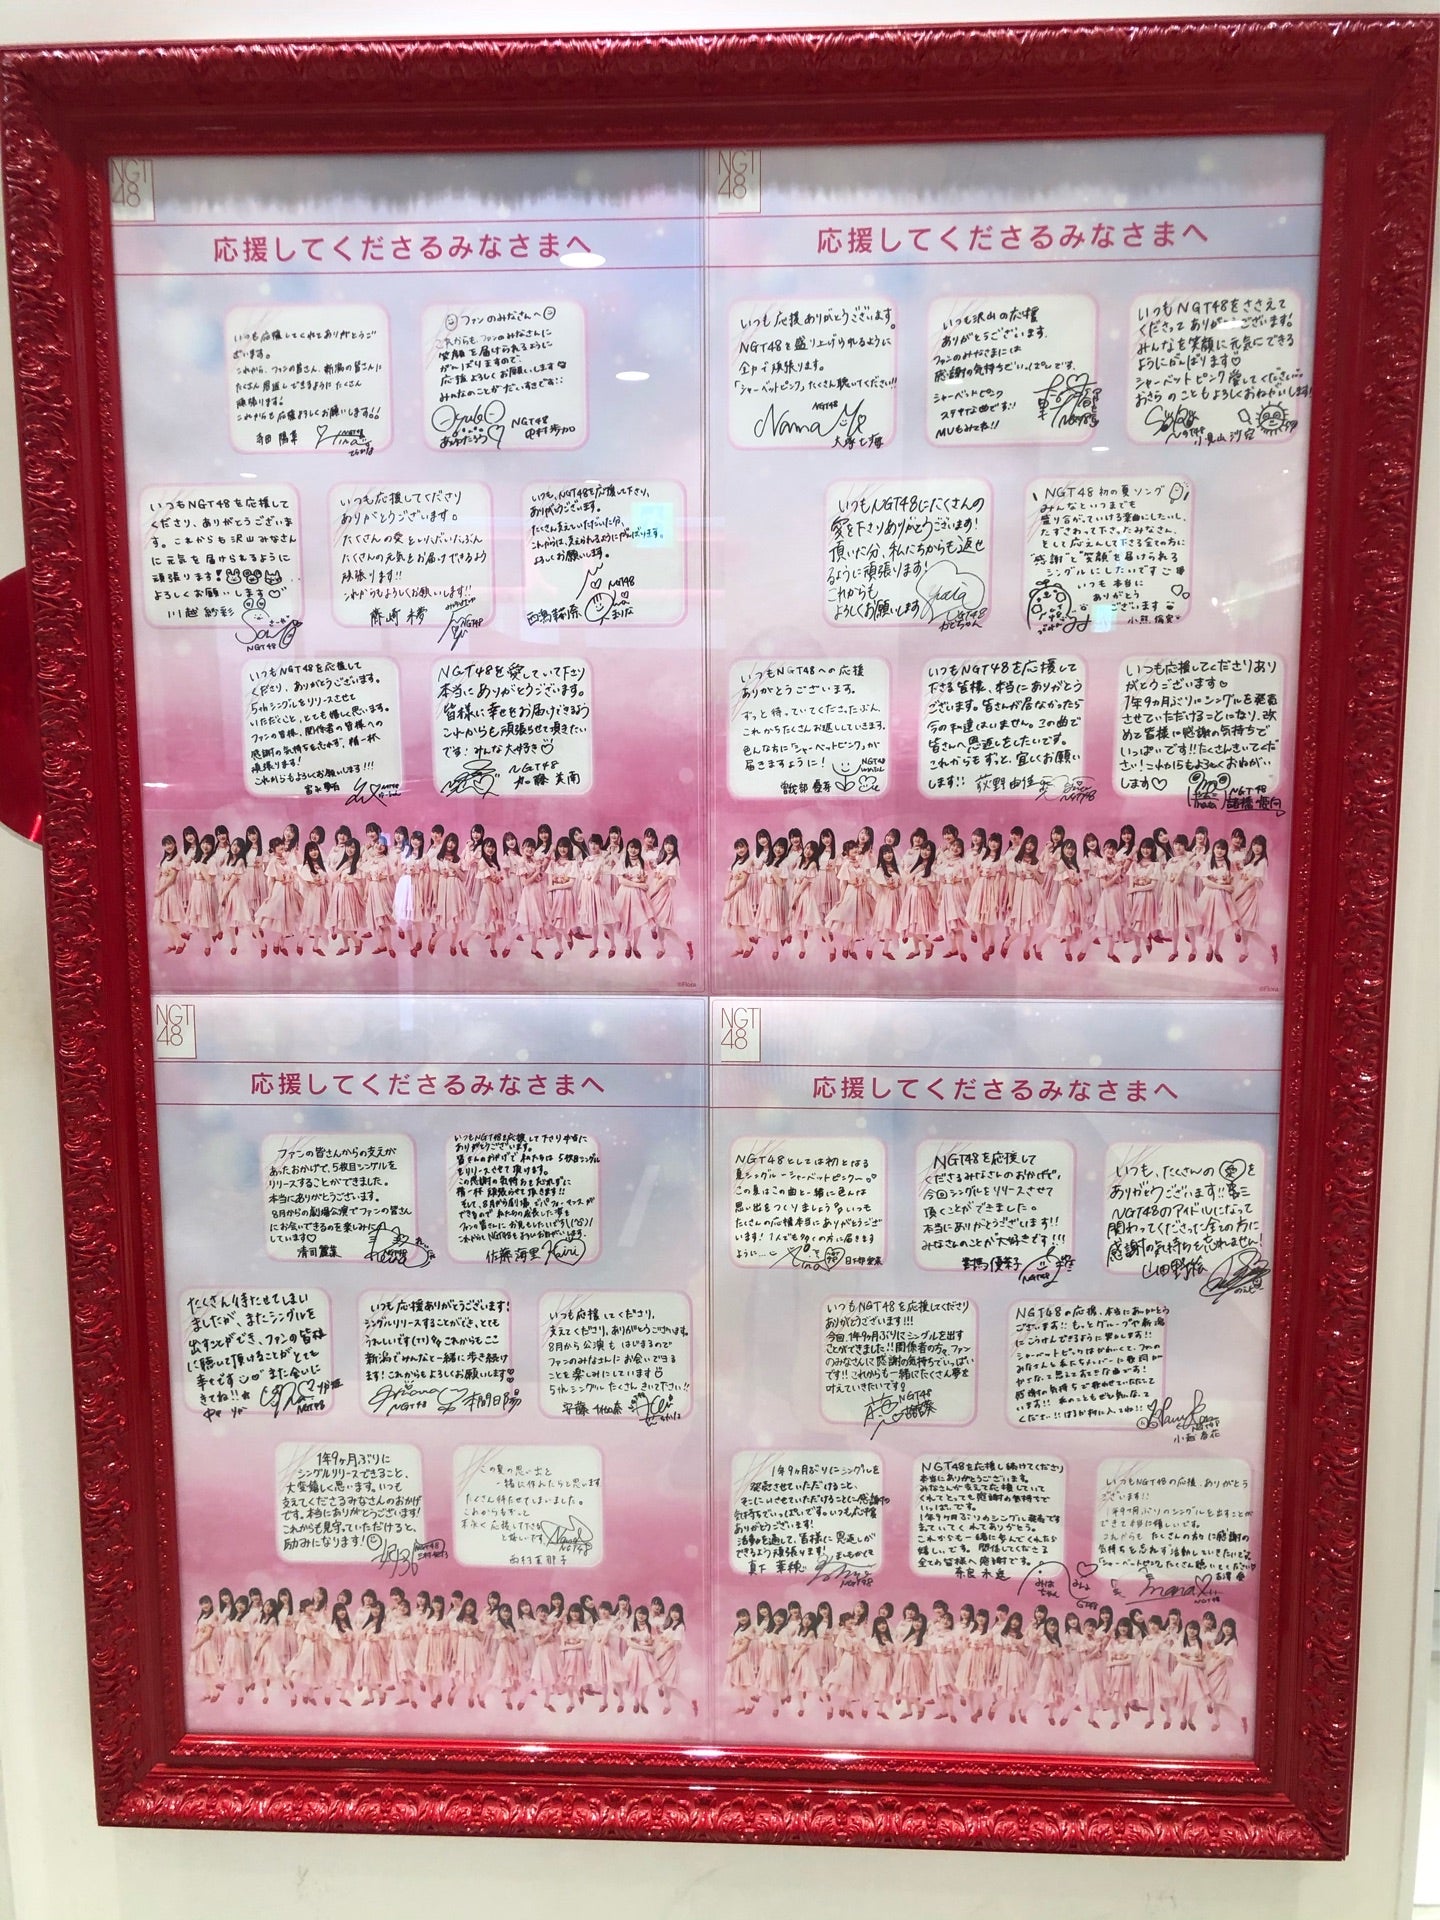 NGT
48
応援してくださるみなさまへ
いつも応援してくれてありがとうご
ざいます。
これから、ファンの皆さん、新潟の皆さんに
たくさん恩返しできるように たくさん
頑張ります!
これからも応援よろしくお願いします!!
ファンのみなさんへ
これからも、ファンのみなさんに
笑顔を届けられるように
がんばりますので、
応援よろしくお願いします
みんなのことがだいすきです
NGT48
中村歩加
いつもNGT48を応援して
くださり、ありがとうございま
す。これからも沢山みなさん
に元気を届けられるように
頑張ります!
よろしくお願いします♡
川越紗彩
NGT48
いつも応援してくださり
ありがとうございます。
たくさんの愛をいただいたぶん
たくさんの元気をお届けできるよう
頑張ります!!
これからもよろしくお願いします!!
藤崎未夢
NGT48
いつも、NGT48を応援して下さり、
ありがとうございます。
たくさん支えていただいた分、
これからは、支えられるようにがんばります。
よろしくお願いします。
NGT48
いつもNGT48を応援して
くださり、ありがとうございます。
5thシングルをリリースさせて
いただくこと、とても嬉しく思います。
ファンの皆様、関係者の皆様への
感謝の気持ちを忘れず、精一杯
頑張ります!
これからもよろしくお願いします!!!
NGT48を愛していて下さり
本当にありがとうございます。
皆様に幸せをお届けできるよう
これからも頑張らせて頂きたい
です!みんな大好き♡
NGT48
加藤美南
©Flora
NGT
48
応援してくださるみなさまへ
いつも応援ありがとうございます。
NGT48を盛り上げられるように
全力で頑張ります。
「シャーベットピンク」たくさん聴いてください!!
NGT48
大塚七海
いつも沢山の応援
ありがとうございます。
ファンのみなさまには
感謝の気持ちでいっぱいです。
シャーベットピンク
ステキな曲です!!
MVもみてね!!
NGT48
いつもNGT48をささえて
くださってありがとうございます!
みんなを笑顔に元気にできる
ようにがんばります♡
シャーベットピンク愛してください
おさらのこともよろしくおねがいします!
NGT48 小見山沙空
いつもNGT48にたくさんの
愛を下さりありがとうございます!
頂いた分、私たちからも返せ
るように頑張ります!
これからも
よろしくお願いします
NGT48
NGT48初の夏ソング
みんなといつまでも
盛り合がっていける楽曲にしたいし、
たずさわって下さったみなさん、
として応えんして下さる全ての方に
"感謝"と"笑顔"を届けられる
シングルにしたいです
いつも本当に
ありがとう
ございます
小熊倫実
いつもNGT48への応援
ありがとうございます。
ずっと待っていてくださったぶん、
これからたくさんお返ししていきます。
色んな方に「シャーベットピンク」が
届きますように!
NGT48
曽我部優芽
いつもNGT48を応援して
下さる皆様、本当にありがとう
ございます。皆さんが居なかったら
今の私達はいません。この曲で
皆さんへ恩返しをしたいです。
これからもずっと、宜しくお願い
します!! 荻野由佳
NGT48
いつも応援してくださりあり
がとうございます♡
1年9カ月ぶりにシングルを発売
させていただけることになり、改
めて皆様に感謝の気持ちで
いっぱいです!!たくさんきいてくだ
さい!これからもよろしくおねがい
します♡
NGT48
諸橋姫向
©Flora
NGT
48
応援してくださるみなさまへ
ファンの皆さんからの支えが
あったおかげで、5枚目シングルを
リリースすることができました。
本当にありがとうございます。
8月からの劇場公演でファンの皆さん
にお会いできるのを楽しみに
しています♡
清司麗菜
いつもNGT48を応援して下さり本当に
ありがとうございます。
皆さんのおかげで私たちは5枚目シングル
をリリースさせて頂けます。
この感謝の気持ちを忘れずに
精一杯頑張らせて頂きます!!
そして、8月から劇場でパフォーマンスが
できるので私たちの成長した姿を
ファンの皆さんにお見せしたいです
これからもNGT48をよろしくお願いします。
佐藤海里
たくさん待たせてしまい
ましたが、またシングルを
出すことができ、ファンの皆様
に聴いて頂けることがとても
幸せです また会いに
きてね!!☆
NGT48
いつも応援ありがとうございます!
シングルリリースすることができ、とても
うれしいです これからもここ
新潟でみんなと一緒に歩き続け
ます!これからもよろしくお願いします♡
NGT48
本間日陽
いつも応援してくださり、
支えてくださり、ありがとうございます。
8月から公演もはじまるので
ファンのみなさんにお会いできる
ことを楽しみにしています
5thシングルたくさんきいて下さい!!
安藤千伽奈
1年9ヶ月ぶりに
シングルリリースできること、
大変嬉しく思います。いつも
支えてくださるみなさんのおかげ
です。本当にありがとうございます!
これからも見守っていただけると、
励みになります!
NGT48
この夏の思い出を
一緒に作れたらと思います
たくさん待たせてしまいました。
これからもずっと
末永く応援して下さる
と嬉しいです。
NGT48
西村菜那子
NGT
48
応援してくださるみなさまへ
NGT48としては初となる
夏シングルーシャーベットピンクー。
この夏はこの曲と一緒に色んな
思い出をつくりましょう いつも
たくさんの応援本当にありがとうござい
ます!1人でも多くの方に届きます
ように…
日下部愛菜
NGT48を応援して
くださるみなさんのおかげで、
今回シングルをリリースさせて
頂くことができました。
本当にありがとうございます!!
みなさんのことが大好きです!!!
對馬優菜子
NGT48
いつも、たくさんの愛を
ありがとうございます!!
NGT48のアイドルになって
関わってくださった全ての方に
感謝の気持ちを忘れません!
山田野絵
いつもNGT48を応援してくださり
ありがとうございます!!!
今回、1年9ヶ月ぶりにシングルを出す
ことができました!!関係者の方々、ファン
のみなさんに感謝の気持ちでいっぱい
です!!これからも一緒にたくさん夢を
叶えていきたいです?
NGT48
NGT48の応援、本当にありがとう
ございます!! もっとグループや新潟
にこうけんできるように努力します!!
小越春花
1年9ヵ月ぶりにシングルを
発売させていただけること、
そこにいさせていただけることに感謝の
気持ちでいっぱいです。いつも応援
ありがとうございます!
活動を通して、皆様に恩返しが
できるよう頑張ります!
真下華穂
NGT48
NGT48を応援し続けてくださり
本当にありがとうございます。
みなさんが支えて応援していて
くれてとっても感謝の気持ちで
いっぱいです。
1年9ヶ月ぶりのシングル発売です
まっていてくれてありがとう。
これからも一緒に歩んでくれたら
嬉しいです。関係してくださる
全ての皆様へ感謝です。
奈良未遥
いつもNGT48の応援、ありがとう
ございます!!
1年9ヶ月ぶりのシングルを出すことが
できて本当に嬉しいです。
これからも、たくさんの方に感謝の
気持ちを忘れず活動していきたいです
「シャーベットピンク」たくさん聴いてください♡
古澤愛
NGT48